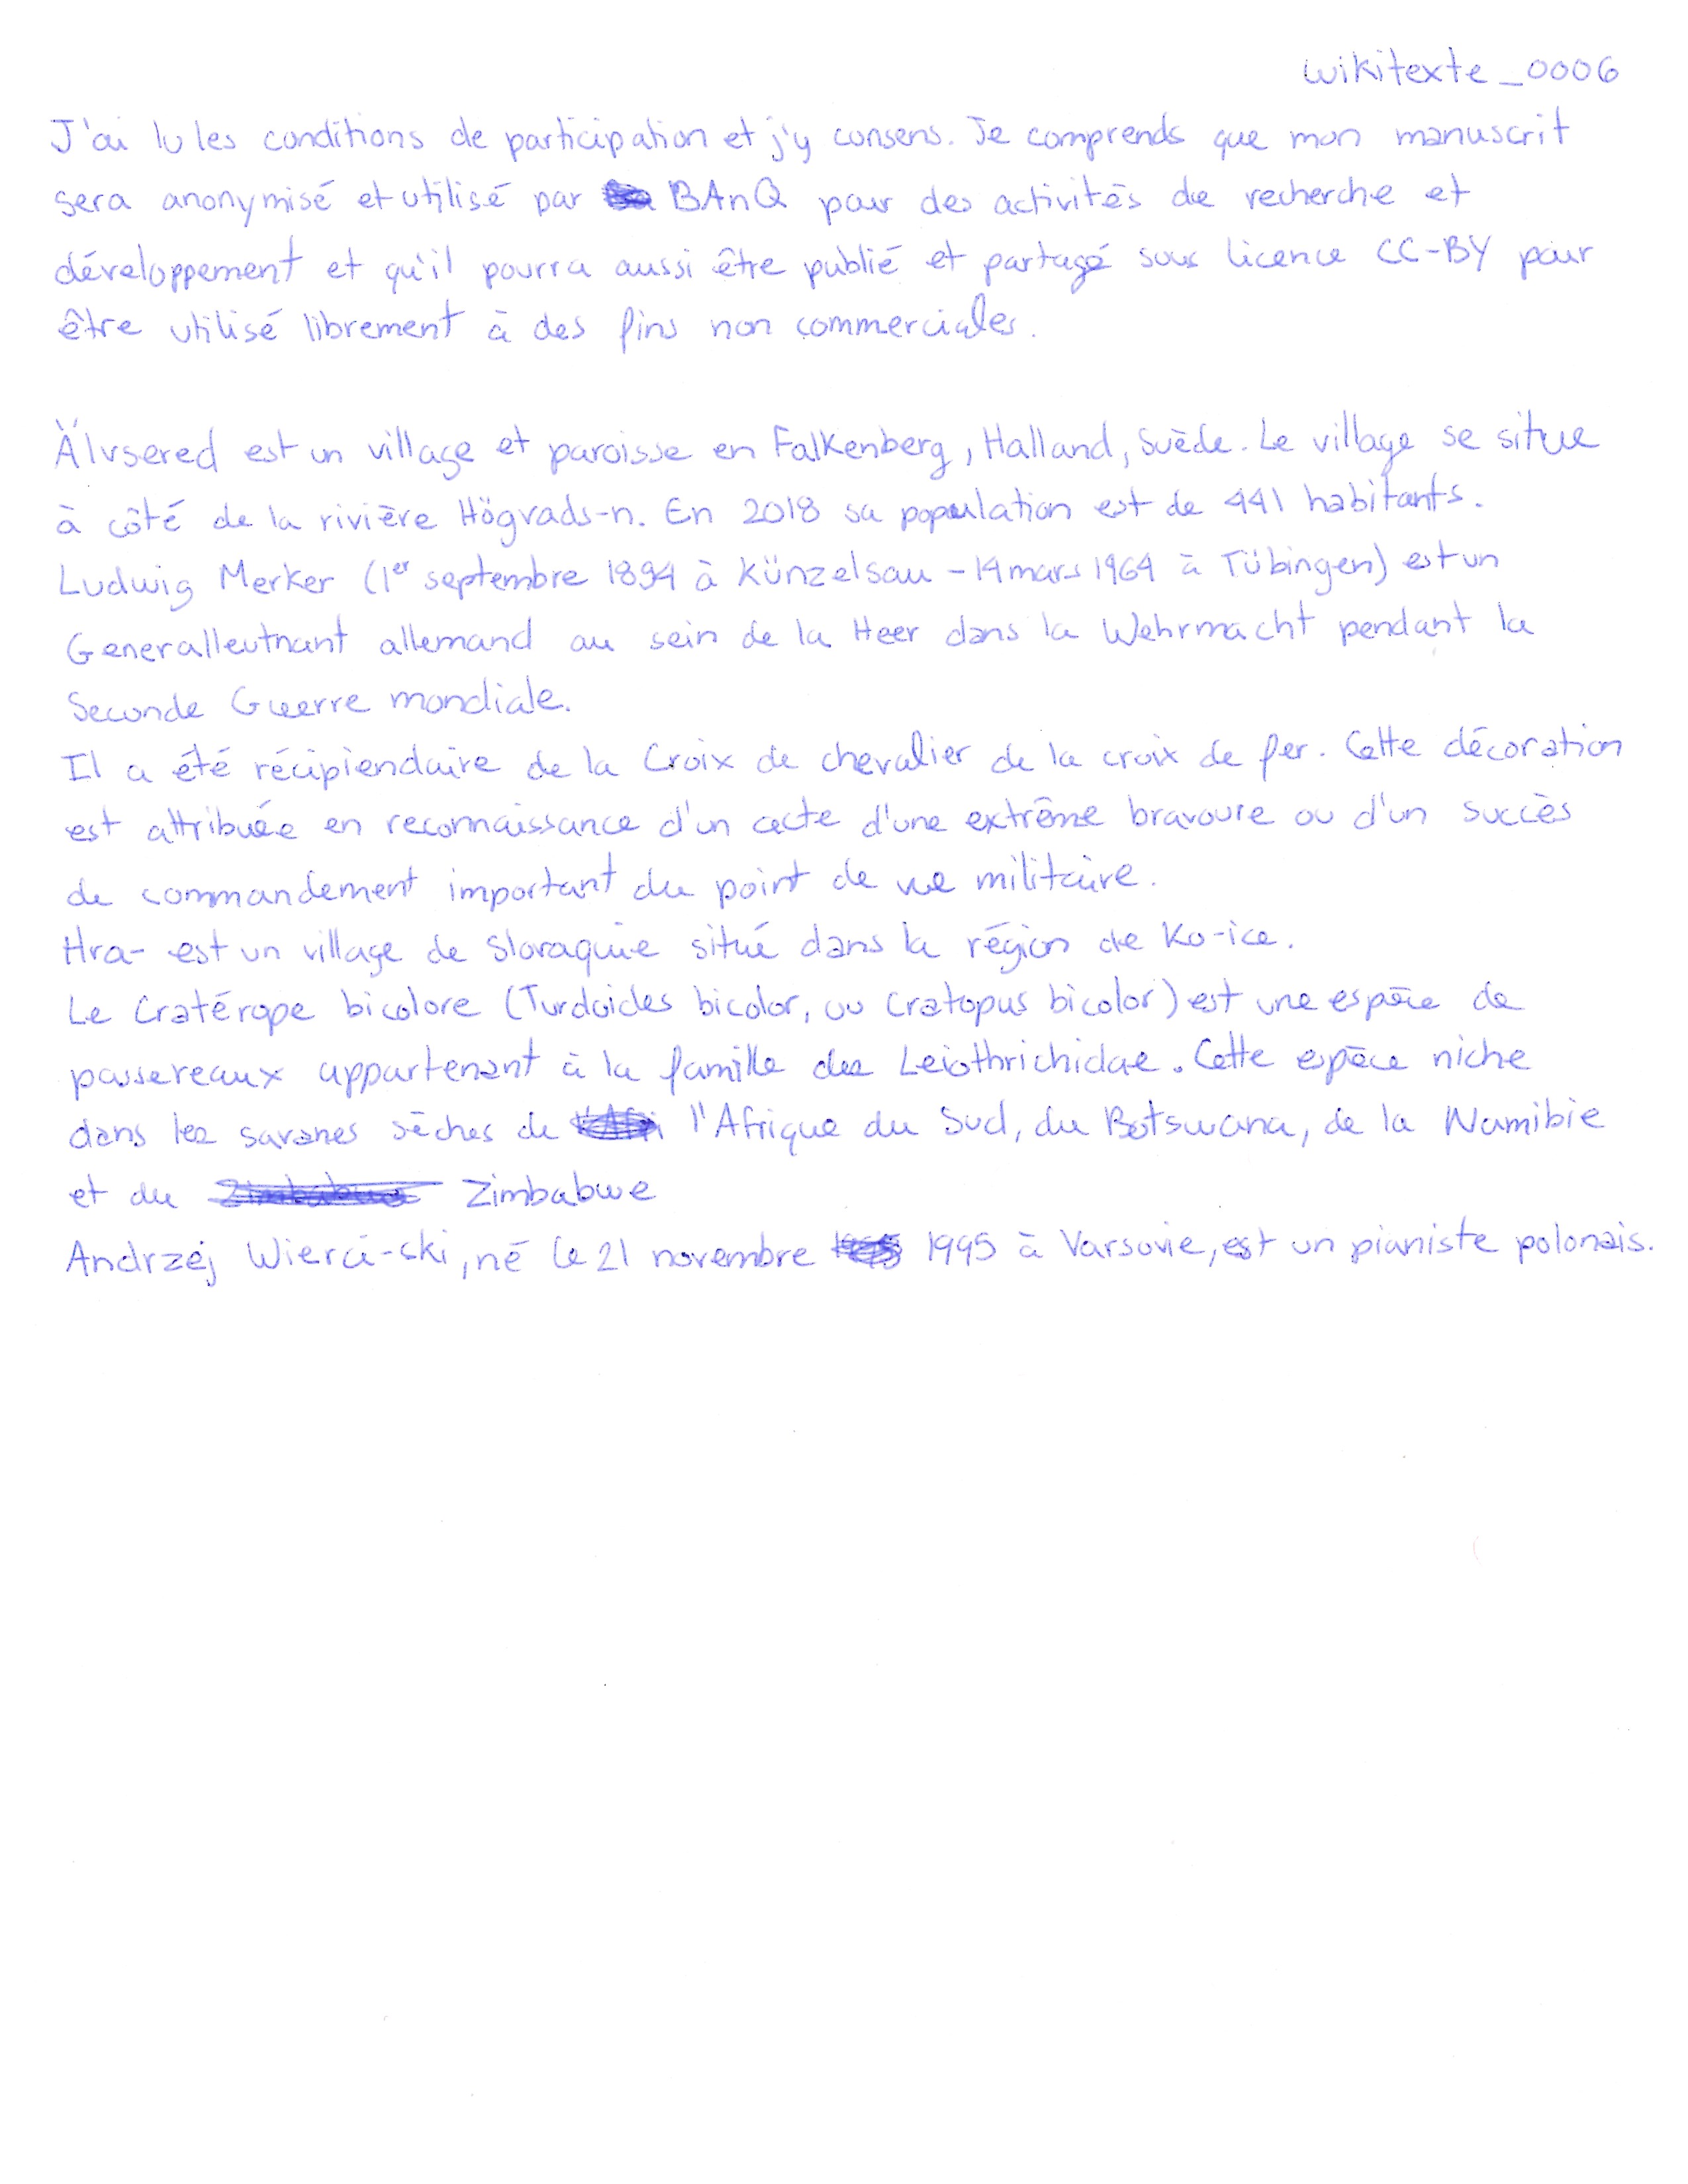 wikitexte_0006
J'ai lu les conditions de participation et j'y consens. Je comprends que mon manuscrit
sera anonymisé et utilisé par BAnQ pour des activités de recherche et
développement et qu'il pourra aussi être publié et partagé sous licence CC-BY pour
être utilisé librement à des fins non commerciales.
Älvsered est un village et paroisse en Falkenberg, Halland, Suède. Le village se situe
à côté de la rivière Högvads-n. En 2018 sa population est de 441 habitants.
Ludwig Merker (1er septembre 1894 à Künzelsau - 14 mars 1964 à Tübingen) est un
Generalleutnant allemand au sein de la Heer dans la Wehrmacht pendant la
Seconde Guerre mondiale.
Il a été récipiendaire de la Croix de chevalier de la croix de fer. Cette décoration
est attribuée en reconnaissance d'un acte d'une extrême bravoure ou d'un succès
de commandement important du point de vue militaire.
Hra- est un village de Slovaquie situé dans la région de Ko-ice.
Le Cratérope bicolore (Turdoides bicolor, ou Cratopus bicolor) est une espèce de
passereaux appartenant à la famille des Leiothrichidae. Cette espèce niche
dans les savanes sèches de l'Afrique du Sud, du Botswana, de la Namibie
et du Zimbabwe
Andrzej Wierci-ski, né le 21 novembre 1995 à Varsovie, est un pianiste polonais.